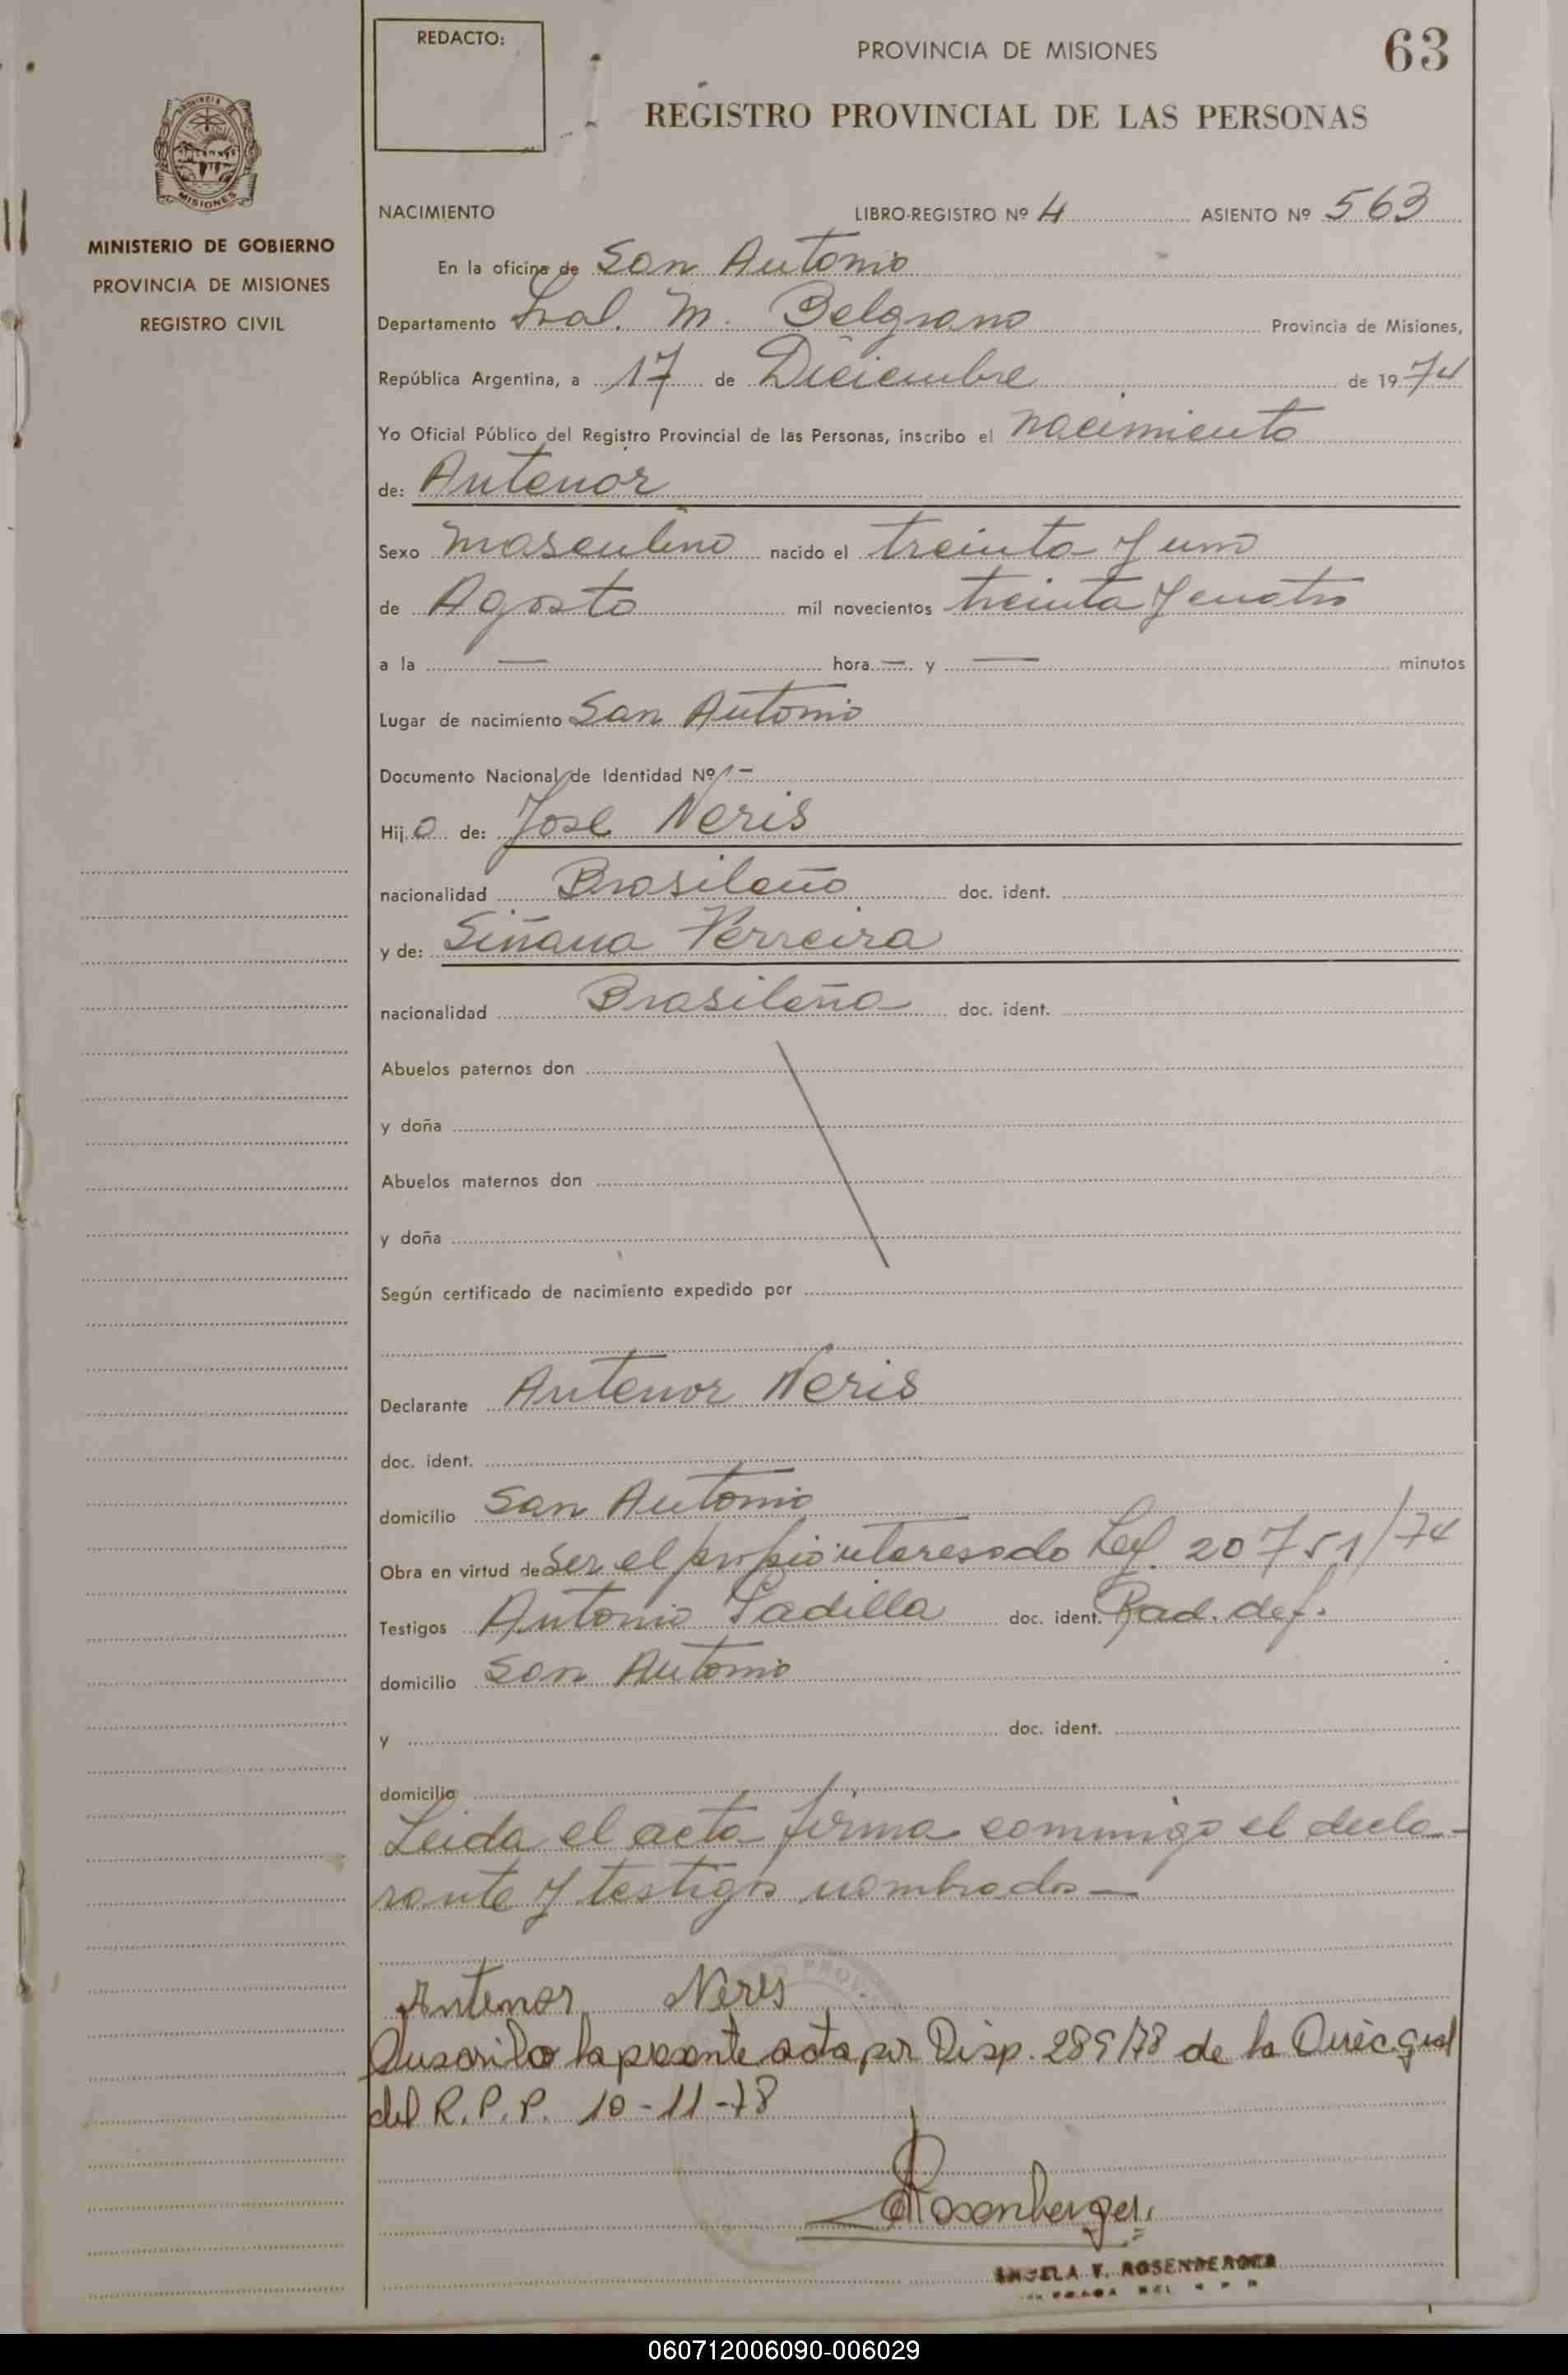 REDACTO:
PROVINCIA DE MISIONES
63
REGISTRO PROVINCIAL DE LAS PERSONAS
PROVINCIA
MISIONES
MINISTERIO DE GOBIERNO
PROVINCIA DE MISIONES
REGISTRO CIVIL
NACIMIENTO LIBRO-REGISTRO Nº 4 ASIENTO Nº 563
En la oficina de San Antonio
Departamento Gral. M. Belgrano Provincia de Misiones,
República Argentina, a 17 de Diciembre de 1974
Yo Oficial Público del Registro Provincial de las Personas, inscribo el nacimiento
de: Antenor
Sexo masculino nacido el treinta y uno
de Agosto mil novecientos treinta y cuatro
a la — hora — y — minutos
Lugar de nacimiento San Antonio
Documento Nacional de Identidad Nº -
Hijo de: Jose Neris
nacionalidad Brasileño doc. ident.
y de: Siñana Ferreira
nacionalidad Brasileña doc. ident.
Abuelos paternos don
y doña
Abuelos maternos don
y doña
Según certificado de nacimiento expedido por
Declarante Antenor Neris
doc. ident.
domicilio San Antonio
Obra en virtud de Ser el propio interesado Ley. 20751/74
Testigos Antonio Padilla doc. ident. Rad. def.
domicilio San Antonio
y doc. ident.
domicilio
Leida el acta firma conmigo el decla-
rante y testigos nombrados —
Antenor Neris
Suscribo la presente acta por Disp. 289/78 de la Direc. Gral
del R.P.P. 10-11-78
Rosenberger
ANGELA V. ROSENBERGER
060712006090-006029